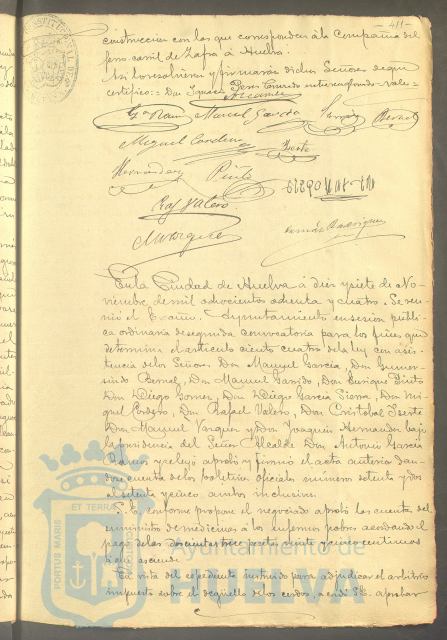 - 411 -
construccion con los que corresponden á la Compañia del
ferro-carril de Zafra á Huelva.
Asi lo resolvieron y firmaron dichos Señores de que
certifico = Don Ignacio
Manuel García
Bernal
Miguel Cordero
Iserte
Hernandez Pinto
Raf Valero
M Vazquez
En la Ciudad de Huelva á diez y siete de No-
viembre de mil ochocientos ochenta y cuatro. Se reu-
nió el Excmo. Ayuntamiento en sesion públi-
ca ordinaria de segunda convocatoria para los fines que
determina el artículo ciento cuatro de la ley con asis-
tencia de los Señores Don Manuel García, Don Gumer-
sindo Bernal, Don Manuel Garrido, Don Enrique Pinto
Don Diego Gomez, Don Diego García Sierra, Don Mi-
guel Cordero, Don Rafael Valero, Don Cristobal Iserte
Don Manuel Vazquez y Don Joaquin Hernandez bajo
la presidencia del Señor Alcalde Don Antonio García
Ramos y se leyó aprobó y firmó el acta anterior dan-
dose cuenta de los boletines oficiales números setenta y dos
al setenta y cinco ambos inclusives.
conforme propone el negociado aprobó las cuentas del
suministro de medicinas á los enfermos pobres acordando el
pago de las doscientas trece pesetas veinte y cinco centimos
á que asciende.
En vista del expediente instruido para adjudicar el arbitrio
impuesto sobre el degüello de los cerdos, acordó S.E. aprobar
PORTUS MARIS ET TERRAE
Ayuntamiento de
HUELVA